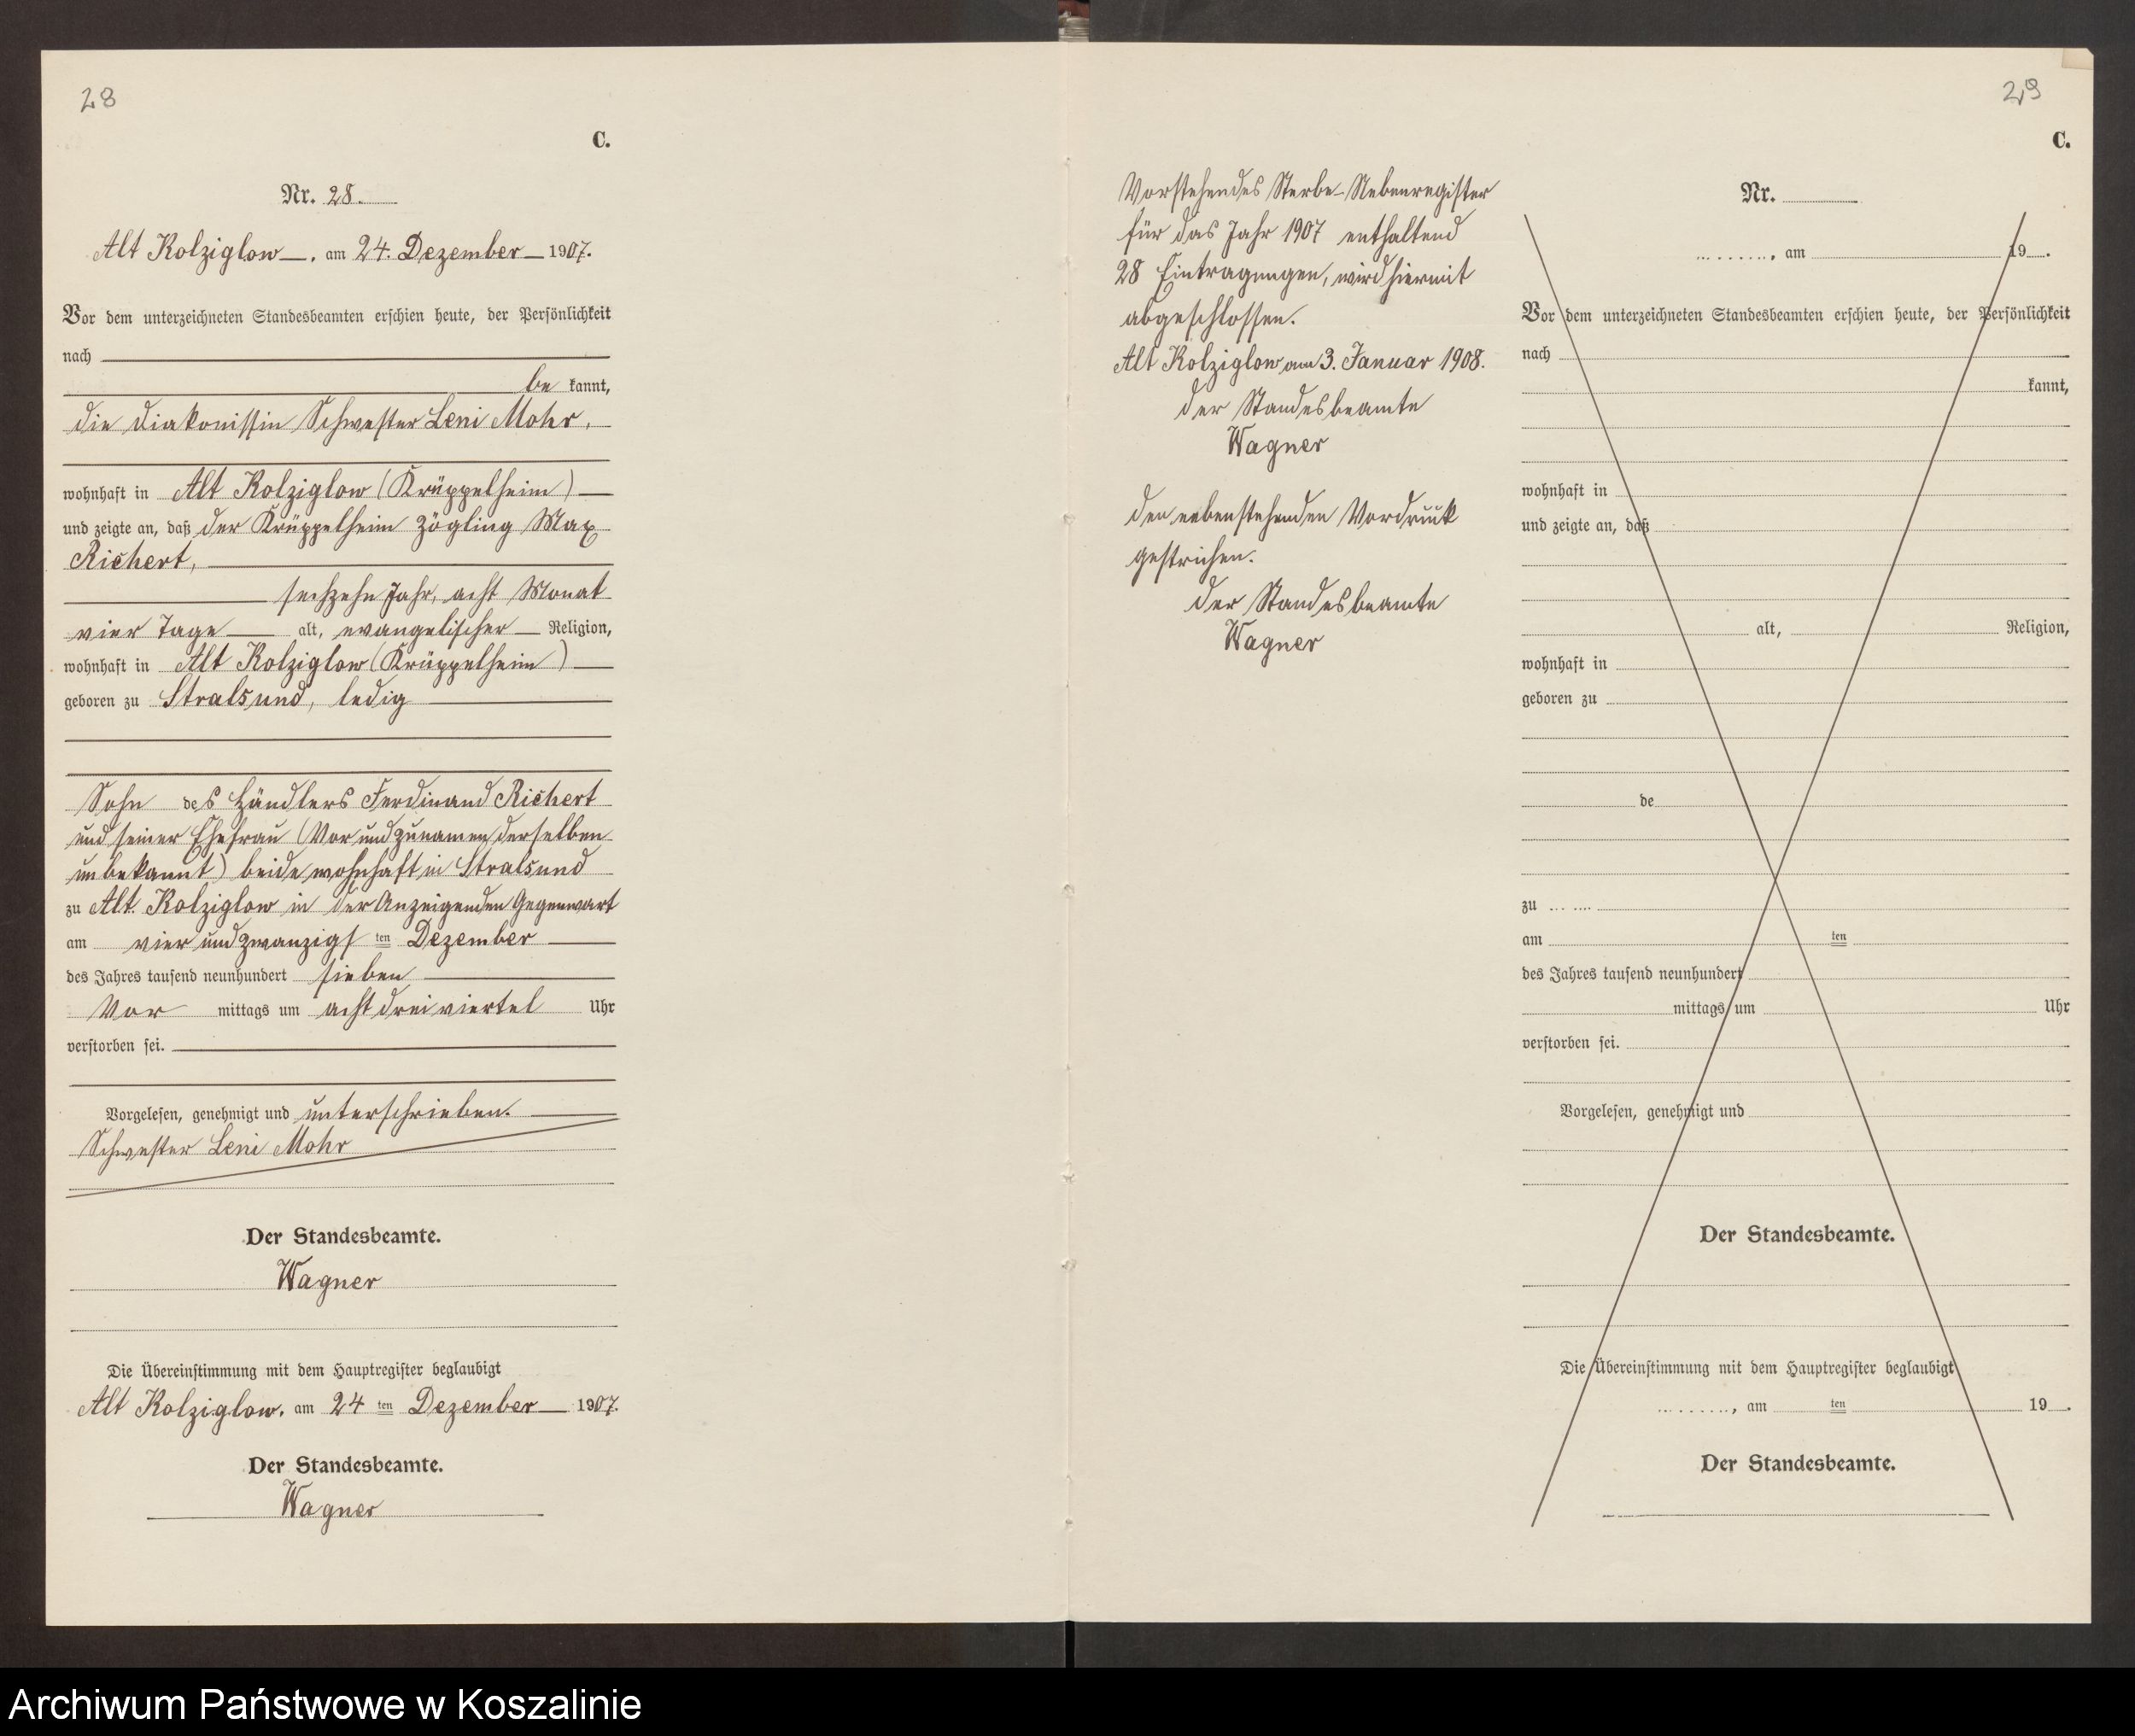 28
C.
Nr. 28.
Alt Kolziglow, am 24. Dezember 1907.
Vor dem unterzeichneten Standesbeamten erschien heute, der Persönlichkeit
nach
be kannt,
die Diakonissin Schwester Leni Mohr,
wohnhaft in Alt Kolziglow (Krüppelheim)
und zeigte an, daß der Krüppelheim Zögling Max
Richert,
sechzehn Jahr, acht Monat
vier Tage alt, evangelischer Religion,
wohnhaft in Alt Kolziglow (Krüppelheim)
geboren zu Stralsund, ledig
Sohn des Händlers Ferdinand Richert
und seiner Ehefrau (Vor und Zunamen derselben
unbekannt) beide wohnhaft in Stralsund
zu Alt Kolziglow in der Anzeigenden Gegenwart
am vier und zwanzigs ten Dezember
des Jahres tausend neunhundert sieben
Vor mittags um acht dreiviertel Uhr
verstorben sei.
Vorgelesen, genehmigt und unterschrieben.
Schwester Leni Mohr
Der Standesbeamte.
Wagner
Die Übereinstimmung mit dem Hauptregister beglaubigt
Alt Kolziglow, am 24 ten Dezember 1907.
Der Standesbeamte.
Wagner
Vorstehendes Sterbe-Nebenregister
für das Jahr 1907 enthaltend
28 Eintragungen, wird hiermit
abgeschlossen.
Alt Kolziglow am 3. Januar 1908.
Der Standesbeamte
Wagner
Den nebenstehenden Vordruck
gestrichen.
Der Standesbeamte
Wagner
29
C.
Nr.
, am 19 .
Vor dem unterzeichneten Standesbeamten erschien heute, der Persönlichkeit
nach
kannt,
wohnhaft in
und zeigte an, daß
alt, Religion,
wohnhaft in
geboren zu
de
zu
am ten
des Jahres tausend neunhundert
mittags um Uhr
verstorben sei.
Vorgelesen, genehmigt und
Der Standesbeamte.
Die Übereinstimmung mit dem Hauptregister beglaubigt
, am ten 19 .
Der Standesbeamte.
Archiwum Państwowe w Koszalinie